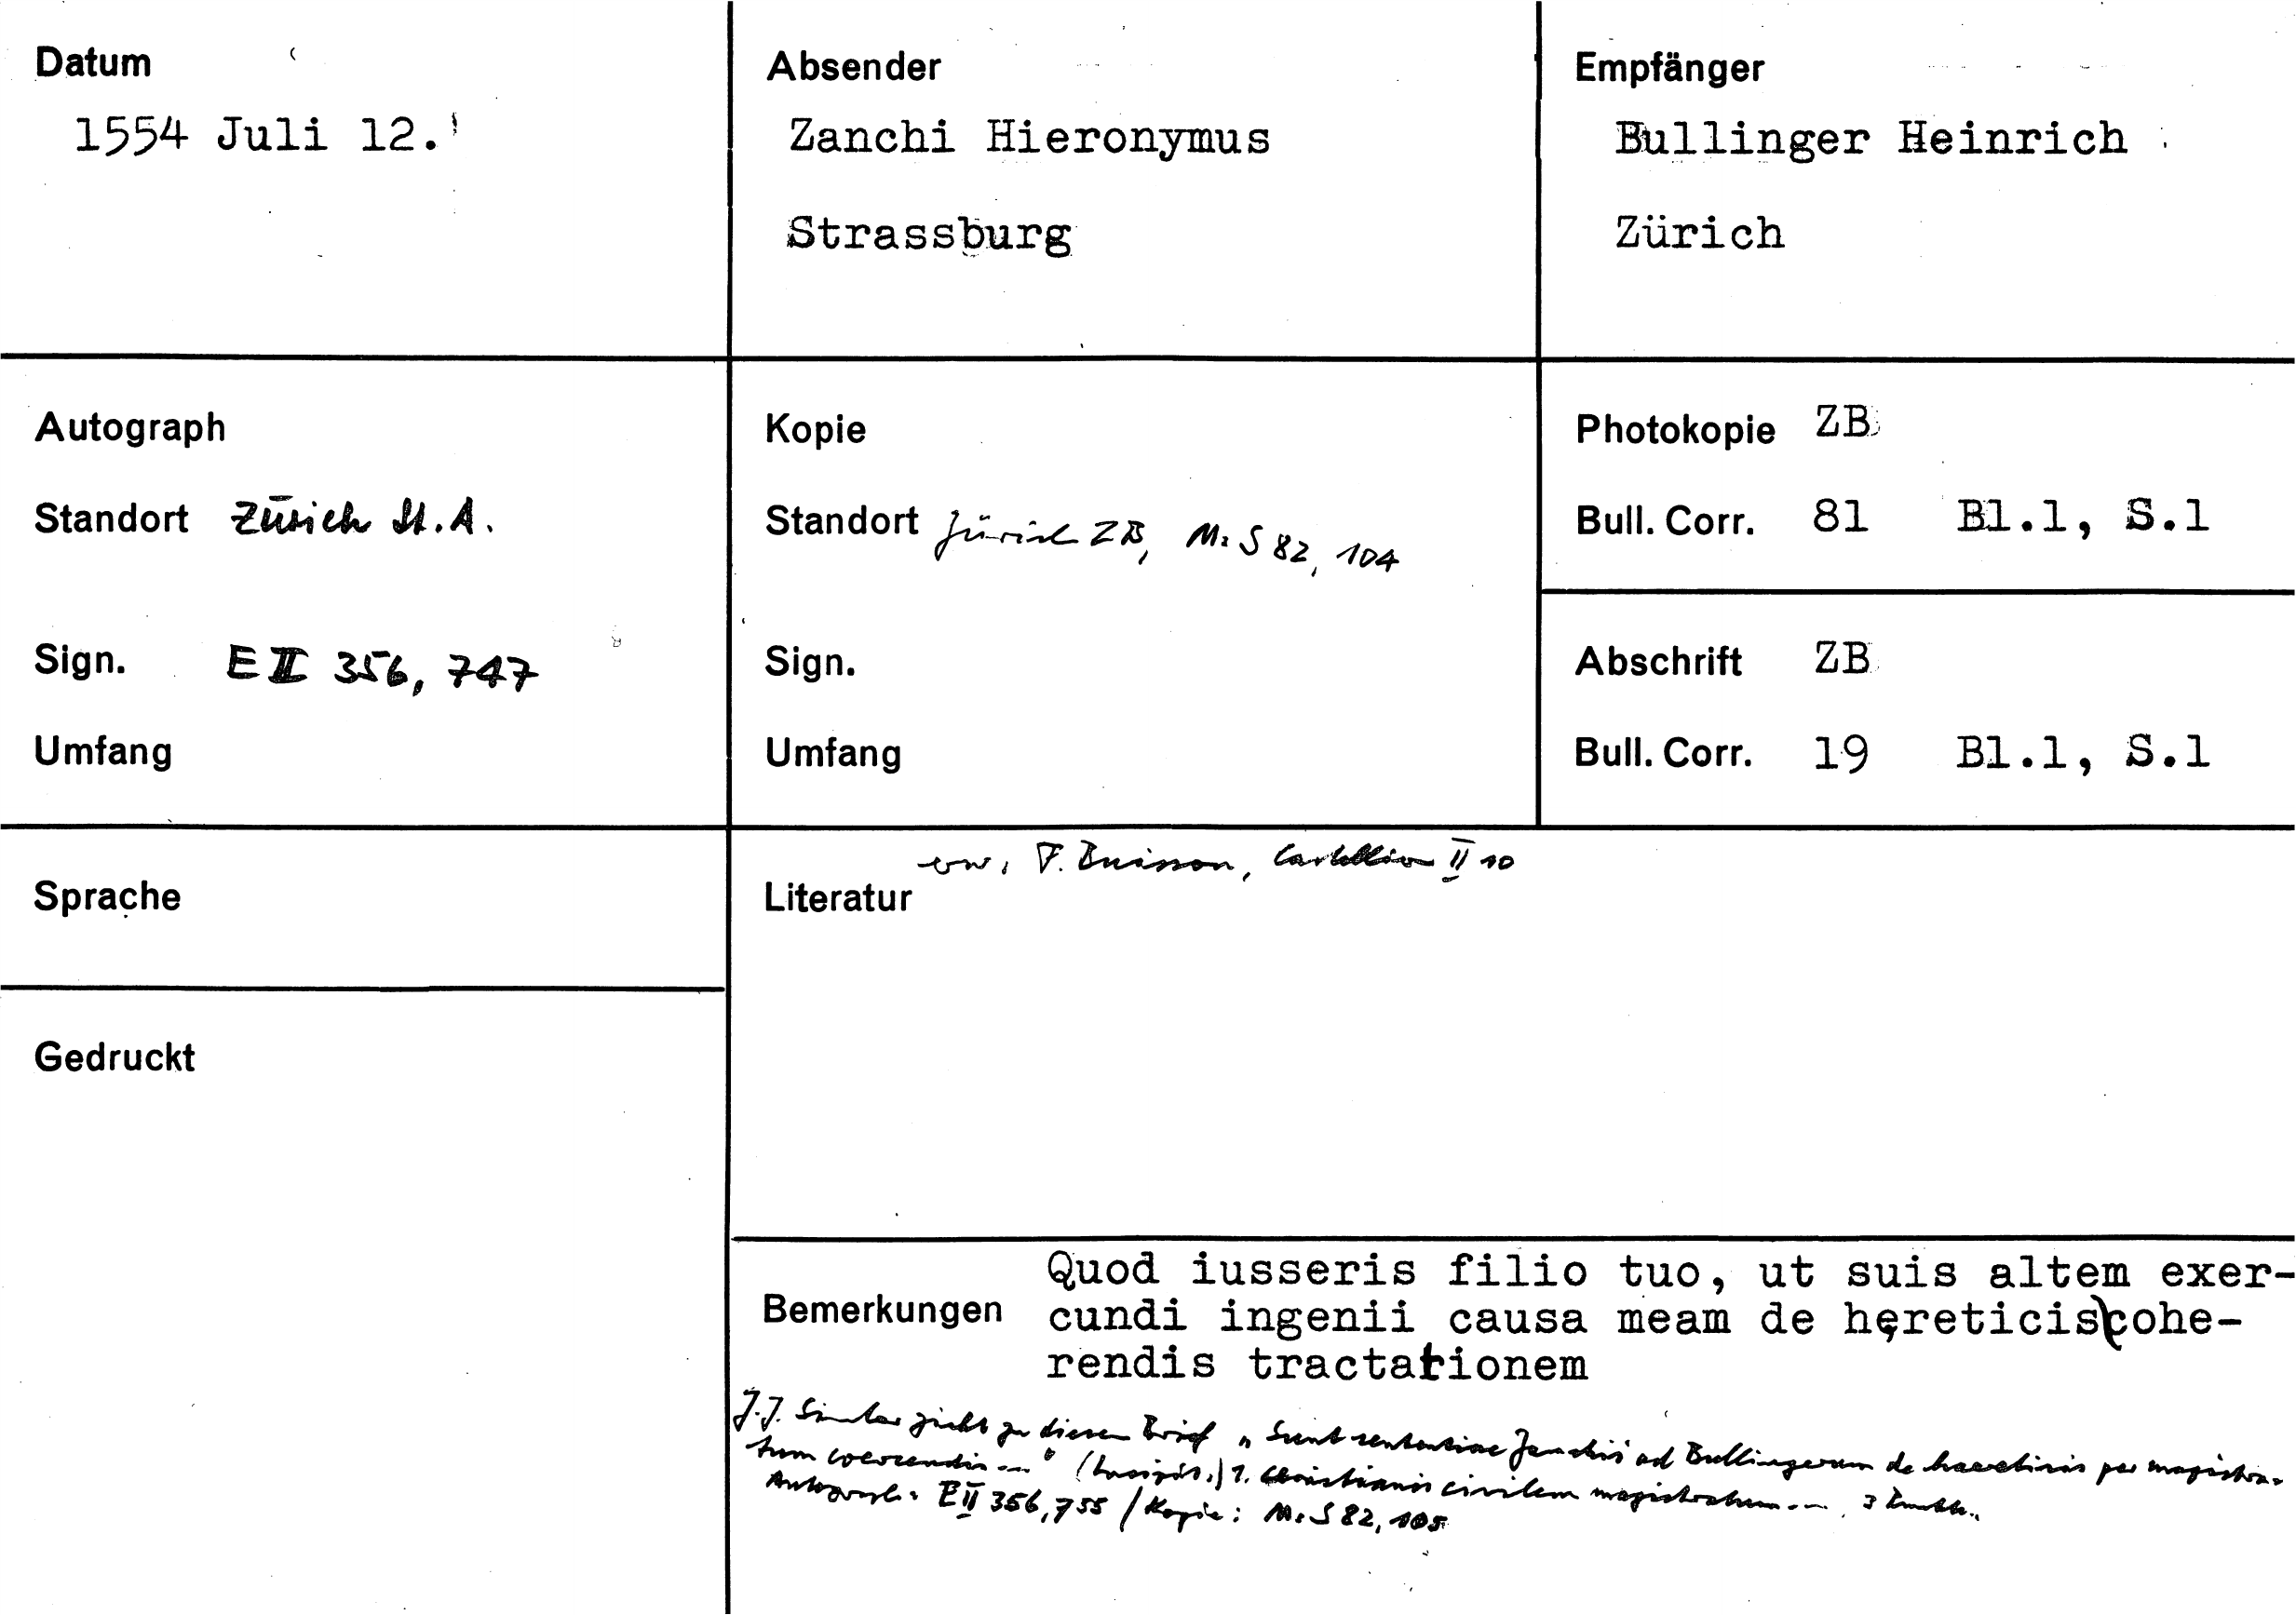 Datum
1554 Juli 12.
Absender
Zanchi Hieronymus
Strassburg
Empfänger
Bullinger Heinrich
Zürich
Autograph
Standort Zürich St.A.
Sign. E II 356, 747
Umfang
Kopie
Standort Zürich ZB, Ms S 82, 104
Sign.
Umfang
Photokopie ZB
Bull. Corr. 81 Bl.1, S.1
Abschrift ZB
Bull. Corr. 19 Bl.1, S.1
Sprache
Gedruckt
Literatur
F. Buisson, Castellion II 10
Bemerkungen
Quod iusseris filio tuo, ut suis altem exer-
cundi ingenii causa meam de hęreticis cohe-
rendis tractationem
J.J. Simler zu diesem Brief „Sunt sententiae Zanchii ad Bullingerum de haereticis per magistra-
tum coercendis ..." 1. Christianis civilem magistratum ...
Autograph: E II 356, 755 / Kopie: Ms S 82, 105